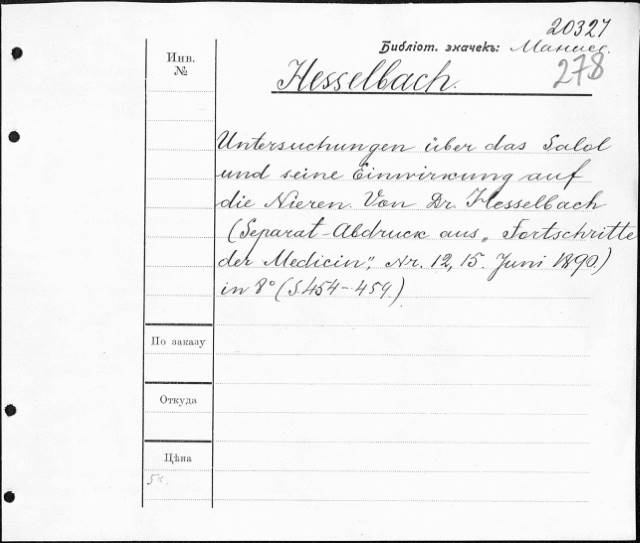 20327
Библіот. значекъ:
278
Инв.
№
Hesselbach.
Untersuchungen über das Salol
und seine Einwirkung auf
die Nieren. Von Dr. Hesselbach
(Separat-Abdruck aus „Fortschritte
der Medicin", Nr. 12, 15. Juni 1890.)
in 8° (S. 454-459.)
По заказу
Откуда
Цѣна
5к.